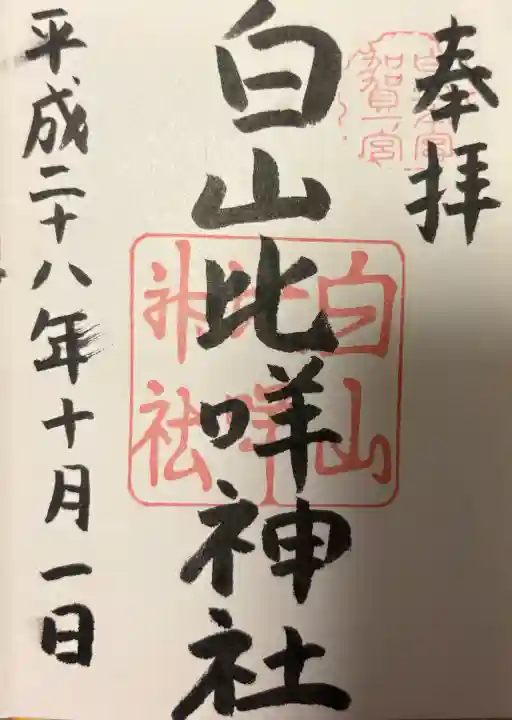 奉拝
白山比咩神社
平成二十八年十月一日
加賀一宮
白山
比咩
神社